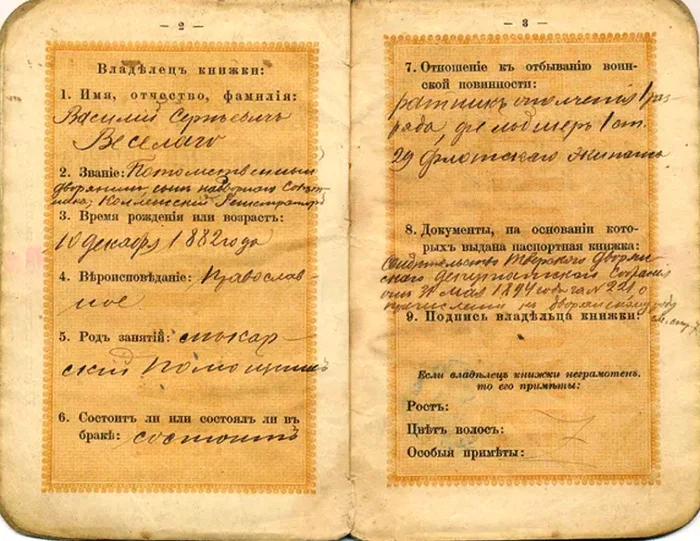 — 2 —
Владѣлецъ книжки:
1. Имя, отчество, фамилія:
Василій Сергѣевичъ
Веселаго
2. Званіе: Потомственный
дворянинъ, сынъ надворнаго Совѣт
ника, Коллежскій Регистраторъ
3. Время рожденія или возрастъ:
10 декабря 1882 года
4. Вѣроисповѣданіе: Православ-
ное
5. Родъ занятій:
скій помощникъ
6. Состоитъ ли или состоялъ ли въ
бракѣ: состоитъ
— 3 —
7. Отношеніе къ отбыванію воин-
ской повинности:
ратникъ ополченія 1 раз
ряда, фельдшеръ 1 ст.
29 флотскаго экипажа
8. Документы, на основаніи кото-
рыхъ выдана паспортная книжка:
Свидѣтельство Тверского Дворян
скаго Депутатскаго Собранія
отъ 31 мая 1894 года за № 221 о
причисленіи къ дворянскому роду
9. Подпись владѣльца книжки:
см. стр. 7
Если владѣлецъ книжки неграмотенъ,
то его примѣты:
Ростъ:
Цвѣтъ волосъ:
Особыя примѣты: